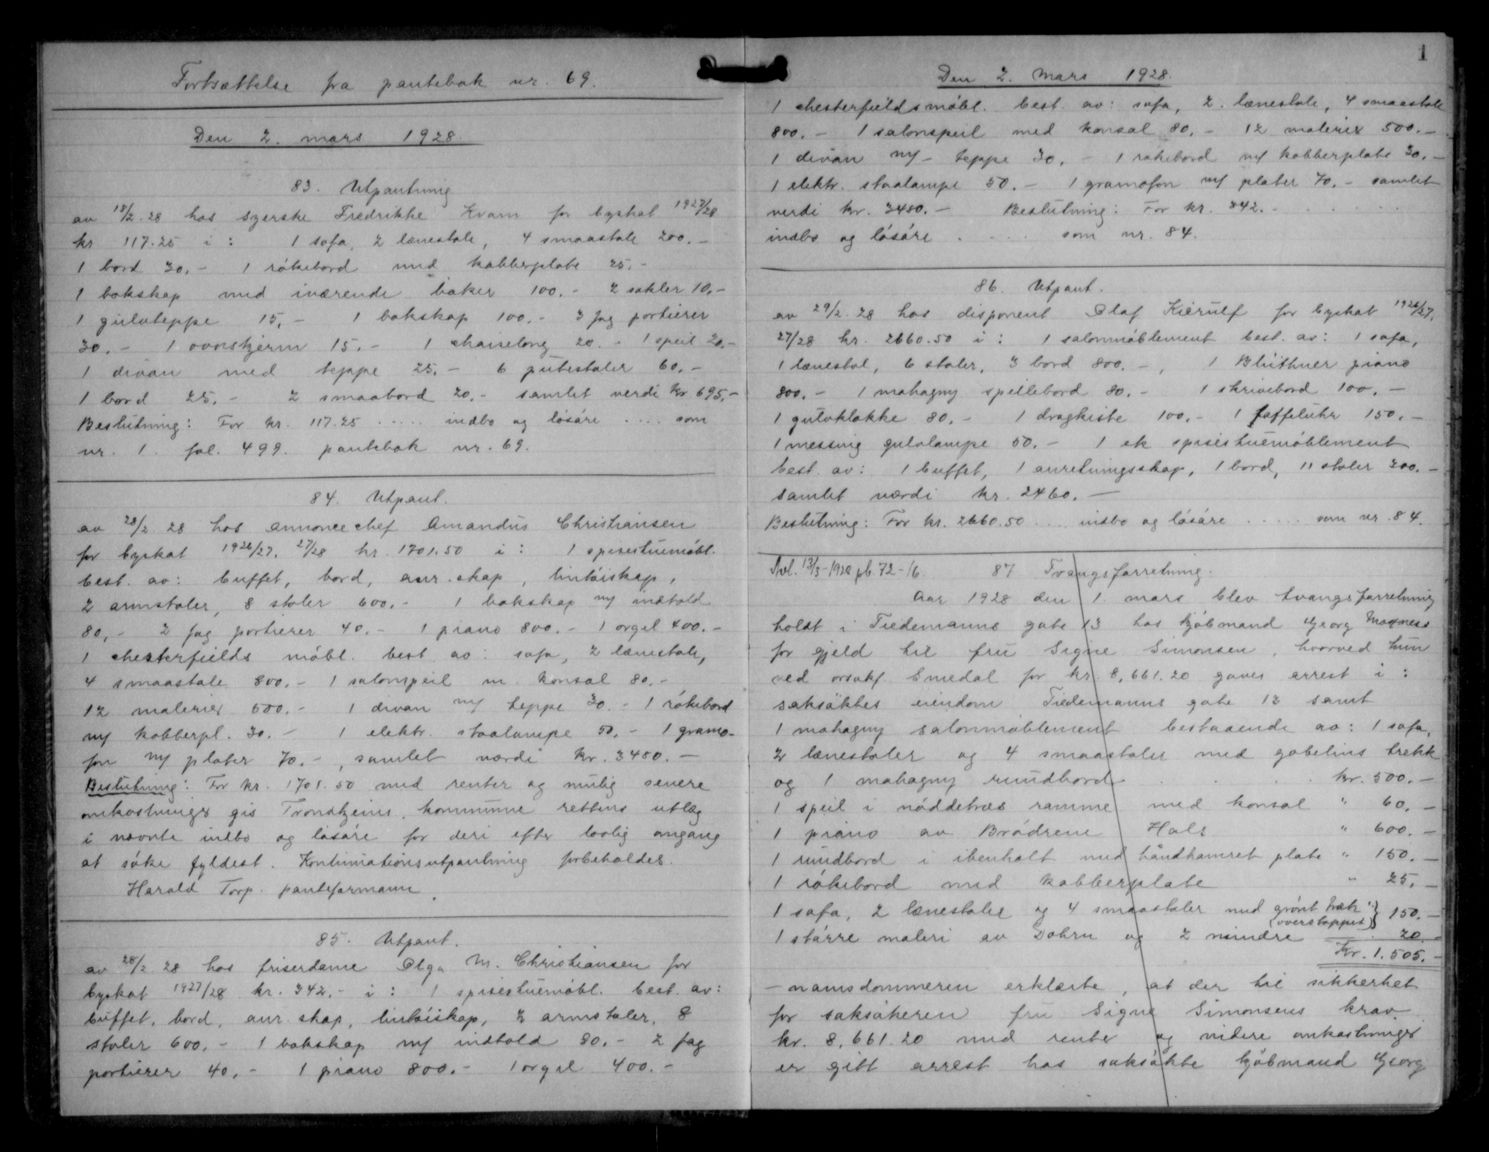 Fortsættelse fra pantebok nr. 69.
Den 2. mars 1928.
83. Utpantning
av 18/2. 28 hos syerske Fredrikke Kvam for byskat 1927/28
kr 117.25 i : 1 sofa, 2 lænestole, 4 smaastole 200.-
1 bord 30.- 1 rökebord med kobberplate 25.-
1 bokskap med iværende böker 100.- 2 sokler 10.-
1 gulvteppe 15.- 1 bokskap 100.- 3 fag portierer
30.- 1 ovnskjerm 15.- 1 chaiselong 20.- 1 speil 20.-
1 divan med teppe 25.- 6 putestoler 60.-
1 bord 25.- 2 smaabord 20.- samlet verdi kr 695,-
Beslutning: For kr. 117.25 ..... indbo og lösöre .... som
nr. 1. fol. 499. pantebok nr. 69.
84. Utpant.
av 28/2. 28 hos annoncechef Amandus Christiansen
for byskat 1926/27, 27/28 kr. 1701.50 i : 1 spisestuemöbl.
best. av: buffet, bord, anr. skap, lintöiskap,
2 armstoler, 8 stoler 600.- 1 bokskap m/ indhold
80,- 2 fag portierer 40.- 1 piano 800.- 1 orgel 400.-
1 chesterfields möbl. best. av: sofa, 2 lænestole,
4 smaastole 800.- 1 salonspeil m. konsol 80.-
12 malerier 500.- 1 divan m/ teppe 30.- 1 rökebord
m/ kobberpl. 30.- 1 elektr. staalampe 50.- 1 gramo-
fon m/ plater 70.-, samlet værdi kr. 3480.-
Beslutning: For kr. 1701.50 med renter og mulig senere
omkostninger gis Trondhjems kommune rettens utlæg
i nævnte indbo og lösöre for deri efter lovlig omgang
at söke fyldest. Kontinuationsutpantning forbeholdes.
Harald Torp. panteformann.
85. Utpant.
av 28/2 28 hos friserdame Olga M. Christiansen for
byskat 1927/28 kr. 342.- i : 1 spisestuemöbl. best. av:
buffet, bord, anr. skap, lintöiskap, 2 armstoler, 8
stoler 600.- 1 bokskap m/ indhold 80.- 2 fag
portierer 40.- 1 piano 800.- 1 orgel 400.-
1
Den 2. mars 1928.
1 chesterfieldsmöbl. best. av: sofa, 2. lænestole, 4 smaastole
800.- 1 salonspeil med konsol 80.- 12 malerier 500.-
1 divan m/ teppe 30.- 1 rökebord m/ kobberplate 30.-
1 elektr. staalampe 50.- 1 gramofon m/ plater 70.- samlet
verdi kr. 3480.- Beslutning: For kr. 342.-
indbo og lösöre ..... som nr. 84.
86. Utpant.
av 29/2. 28 hos disponent Olaf Kierulf for byskat 1926/27,
27/28 kr. 2660.50 i : 1 salonmöblement best. av: 1 sofa,
1 lænestol, 6 stoler, 3 bord 800.-, 1 Blüthner piano
800.- 1 mahogny spillebord 80.- 1 skrivebord 100.-
1 gulvklokke 80.- 1 dragkiste 100.- 1 taffeluhr 150.-
1 messing gulvlampe 50.- 1 ek spisestuemöblement
best. av: 1 buffet, 1 anretningsskap, 1 bord, 11 stoler 300.-
samlet værdi kr. 2460.-
Beslutning: For kr. 2660.50 .... indbo og lösöre ..... som nr. 84.
Avl. 13/3-1928 pb. 72-16. 87 Tvangsforretning.
Aar 1928 den 1. mars blev tvangsforretning
holdt i Tiedemanns gate 13 hos kjöbmand Georg
for gjeld til fru Signe Simonsen, hvorved hun
ved orsakf. Emedal for kr. 8,661.20 gaves arrest i :
saksöktes eiendom Tiedemanns gate 13 samt
1 mahogny salonmöblement bestaaende av: 1 sofa,
2 lænestoler og 4 smaastoler med gobelins trekk
og 1 mahogny rundbord kr. 500.-
1 speil i nöddetræs ramme med konsol " 60.-
1 piano av Brödrene Hals " 600.-
1 rundbord i ibenholt med håndhamret plate " 150.-
1 rökebord med kobberplate " 25.-
1 sofa, 2 lænestoler og 4 smaastoler med grönt træk (overstoppet) " 150.-
1 större maleri av Dahn og 2 mindre 20.-
Kr. 1.505.-
- namsdommeren erklærte, at der til sikkerhet
for saksökeren fru Signe Simonsens krav
kr. 8,661.20 med renter og videre omkostninger
er gitt arrest hos saksökte kjöbmand Georg